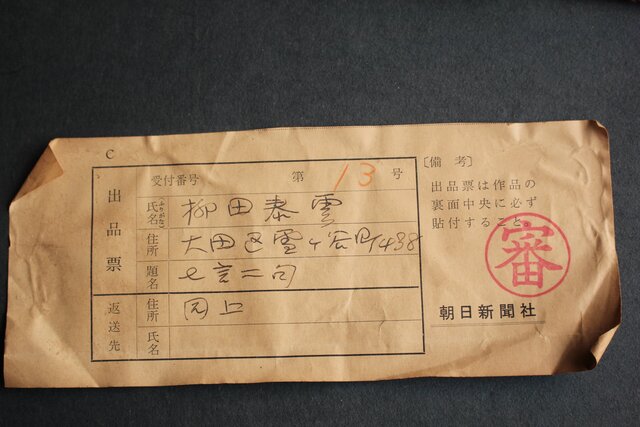 C
受付番号 第 13 号
出品票
氏名(ふりがな) 柳田泰雲
住所 大田区雪ヶ谷町438
題名 七言二句
返送先
住所 同上
氏名
〔備考〕
出品票は作品の
裏面中央に必ず
貼付すること。
審
朝日新聞社